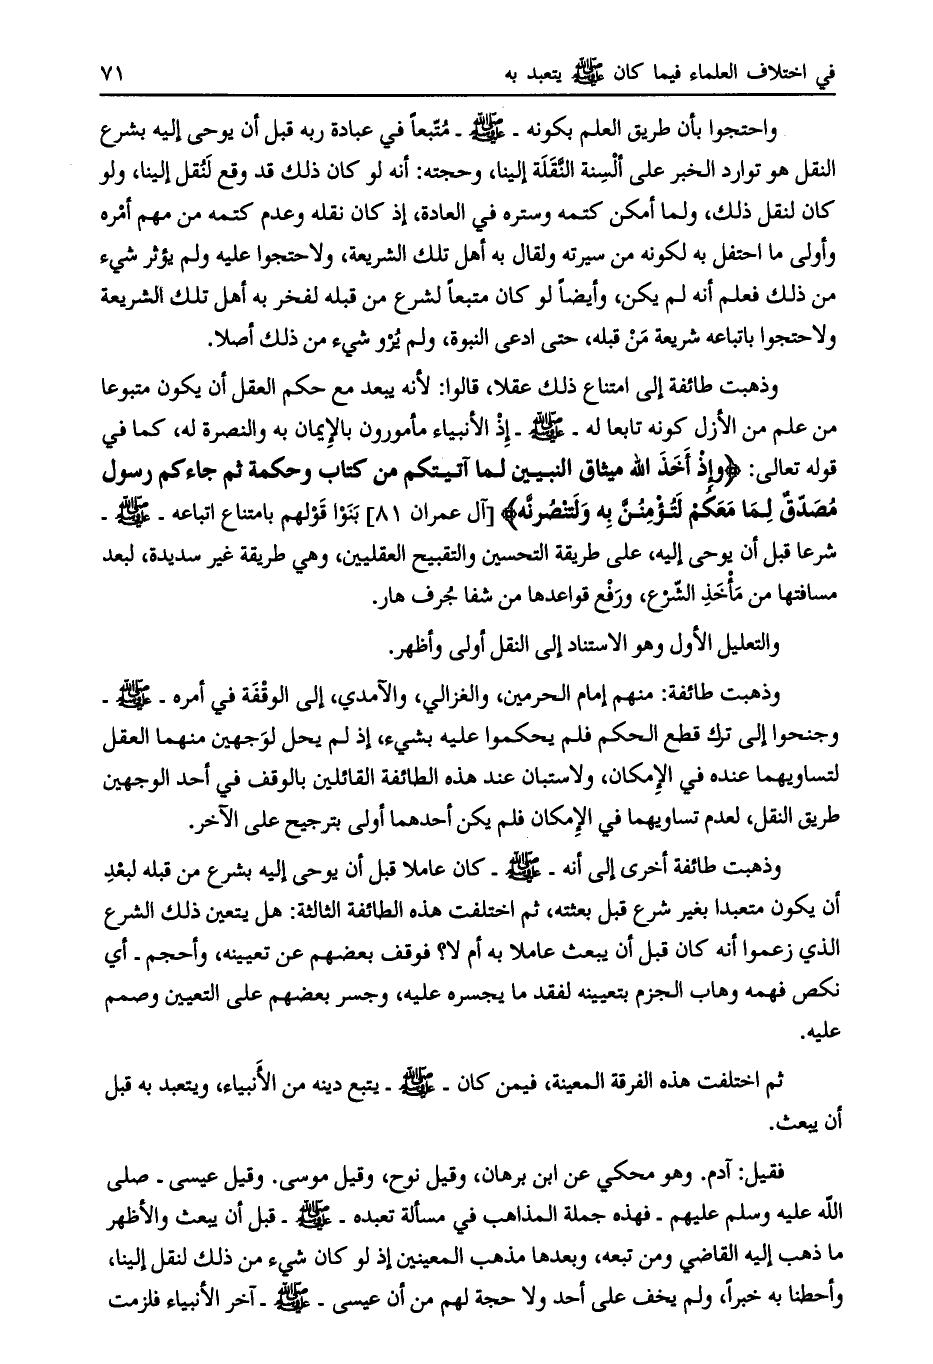 في اختلاف العلماء فيما كان ﷺ يتعبد به ٧١
واحتجوا بأن طريق العلم بكونه ـ ﷺ ـ مُتّبعاً في عبادة ربه قبل أن يوحى إليه بشرع
النقل هو توارد الخبر على ألْسِنة النَّقَلَة إلينا، وحجته: أنه لو كان ذلك قد وقع لَنُقل إلينا، ولو
كان لنقل ذلك، ولما أمكن كتمه وستره في العادة، إذ كان نقله وعدم كتمه من مهم أمْره
وأولى ما احتفل به لكونه من سيرته ولقال به أهل تلك الشريعة، ولاحتجوا عليه ولم يؤثر شيء
من ذلك فعلم أنه لم يكن، وأيضاً لو كان متبعاً لشرع من قبله لفخر به أهل تلك الشريعة
ولاحتجوا باتباعه شريعة مَنْ قبله، حتى ادعى النبوة، ولم يُرْو شيء من ذلك أصلا.
وذهبت طائفة إلى امتناع ذلك عقلا، قالوا: لأنه يبعد مع حكم العقل أن يكون متبوعا
من علم من الأزل كونه تابعا له ـ ﷺ ـ إذْ الأنبياء مأمورون بالإيمان به والنصرة له، كما في
قوله تعالى: ﴿وإذْ أَخَذَ الله ميثاق النبيين لما آتيتكم من كتاب وحكمة ثم جاءكم رسول
مُصَدّقٌ لِمَا مَعَكُمْ لَتُؤمِنُنَّ بِه وَلَتَنْصُرنَّه﴾ [آل عمران ٨١] بَنَوْا قَوْلهم بامتناع اتباعه ـ ﷺ ـ
شرعا قبل أن يوحى إليه، على طريقة التحسين والتقبيح العقليين، وهي طريقة غير سديدة، لبعد
مسافتها من مَأْخَذِ الشّرْع، ورَفْع قواعدها من شفا جُرف هار.
والتعليل الأول وهو الاستناد إلى النقل أولى وأظهر.
وذهبت طائفة: منهم إمام الحرمين، والغزالي، والآمدي، إلى الوقْفَة في أمره ـ ﷺ ـ
وجنحوا إلى ترك قطع الحكم فلم يحكموا عليه بشيء، إذ لم يحل لوَجهين منهما العقل
لتساويهما عنده في الإمكان، ولاستبان عند هذه الطائفة القائلين بالوقف في أحد الوجهين
طريق النقل، لعدم تساويهما في الإمكان فلم يكن أحدهما أولى بترجيح على الآخر.
وذهبت طائفة أخرى إلى أنه ـ ﷺ ـ كان عاملا قبل أن يوحى إليه بشرع من قبله لبعْدِ
أن يكون متعبدا بغير شرع قبل بعثته، ثم اختلفت هذه الطائفة الثالثة: هل يتعين ذلك الشرع
الذي زعموا أنه كان قبل أن يبعث عاملا به أم لا؟ فوقف بعضهم عن تعيينه، وأحجم ـ أي
نكص فهمه وهاب الجزم بتعيينه لفقد ما يجسره عليه، وجسر بعضهم على التعيين وصمم
عليه.
ثم اختلفت هذه الفرقة المعينة، فيمن كان ـ ﷺ ـ يتبع دينه من الأَنبياء، ويتعبد به قبل
أن يبعث.
فقيل: آدم. وهو محكي عن ابن برهان، وقيل نوح، وقيل موسى. وقيل عيسى ـ صلى
الله عليه وسلم عليهم ـ فهذه جملة المذاهب في مسألة تعبده ـ ﷺ ـ قبل أن يبعث والأظهر
ما ذهب إليه القاضي ومن تبعه، وبعدها مذهب المعينين إذ لو كان شيء من ذلك لنقل إلينا،
وأحطنا به خبراً، ولم يخف على أحد ولا حجة لهم من أن عيسى ـ ﷺ ـ آخر الأنبياء فلزمت